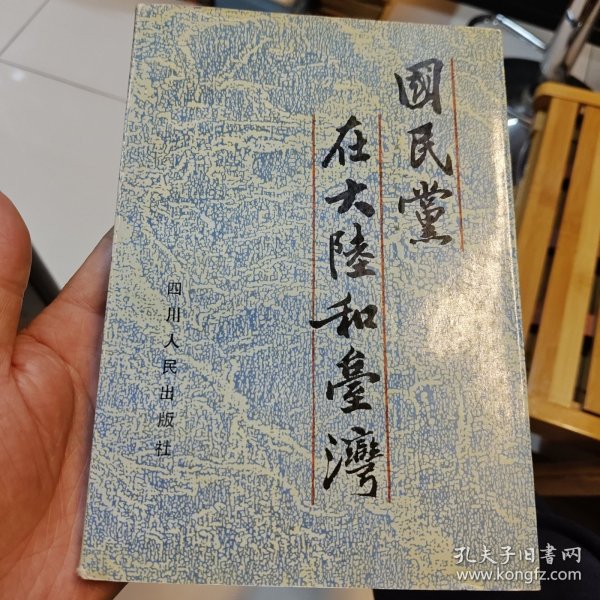 國民黨
在大陸和臺灣
四川人民出版社
孔夫子旧书网
www.kongfz.com